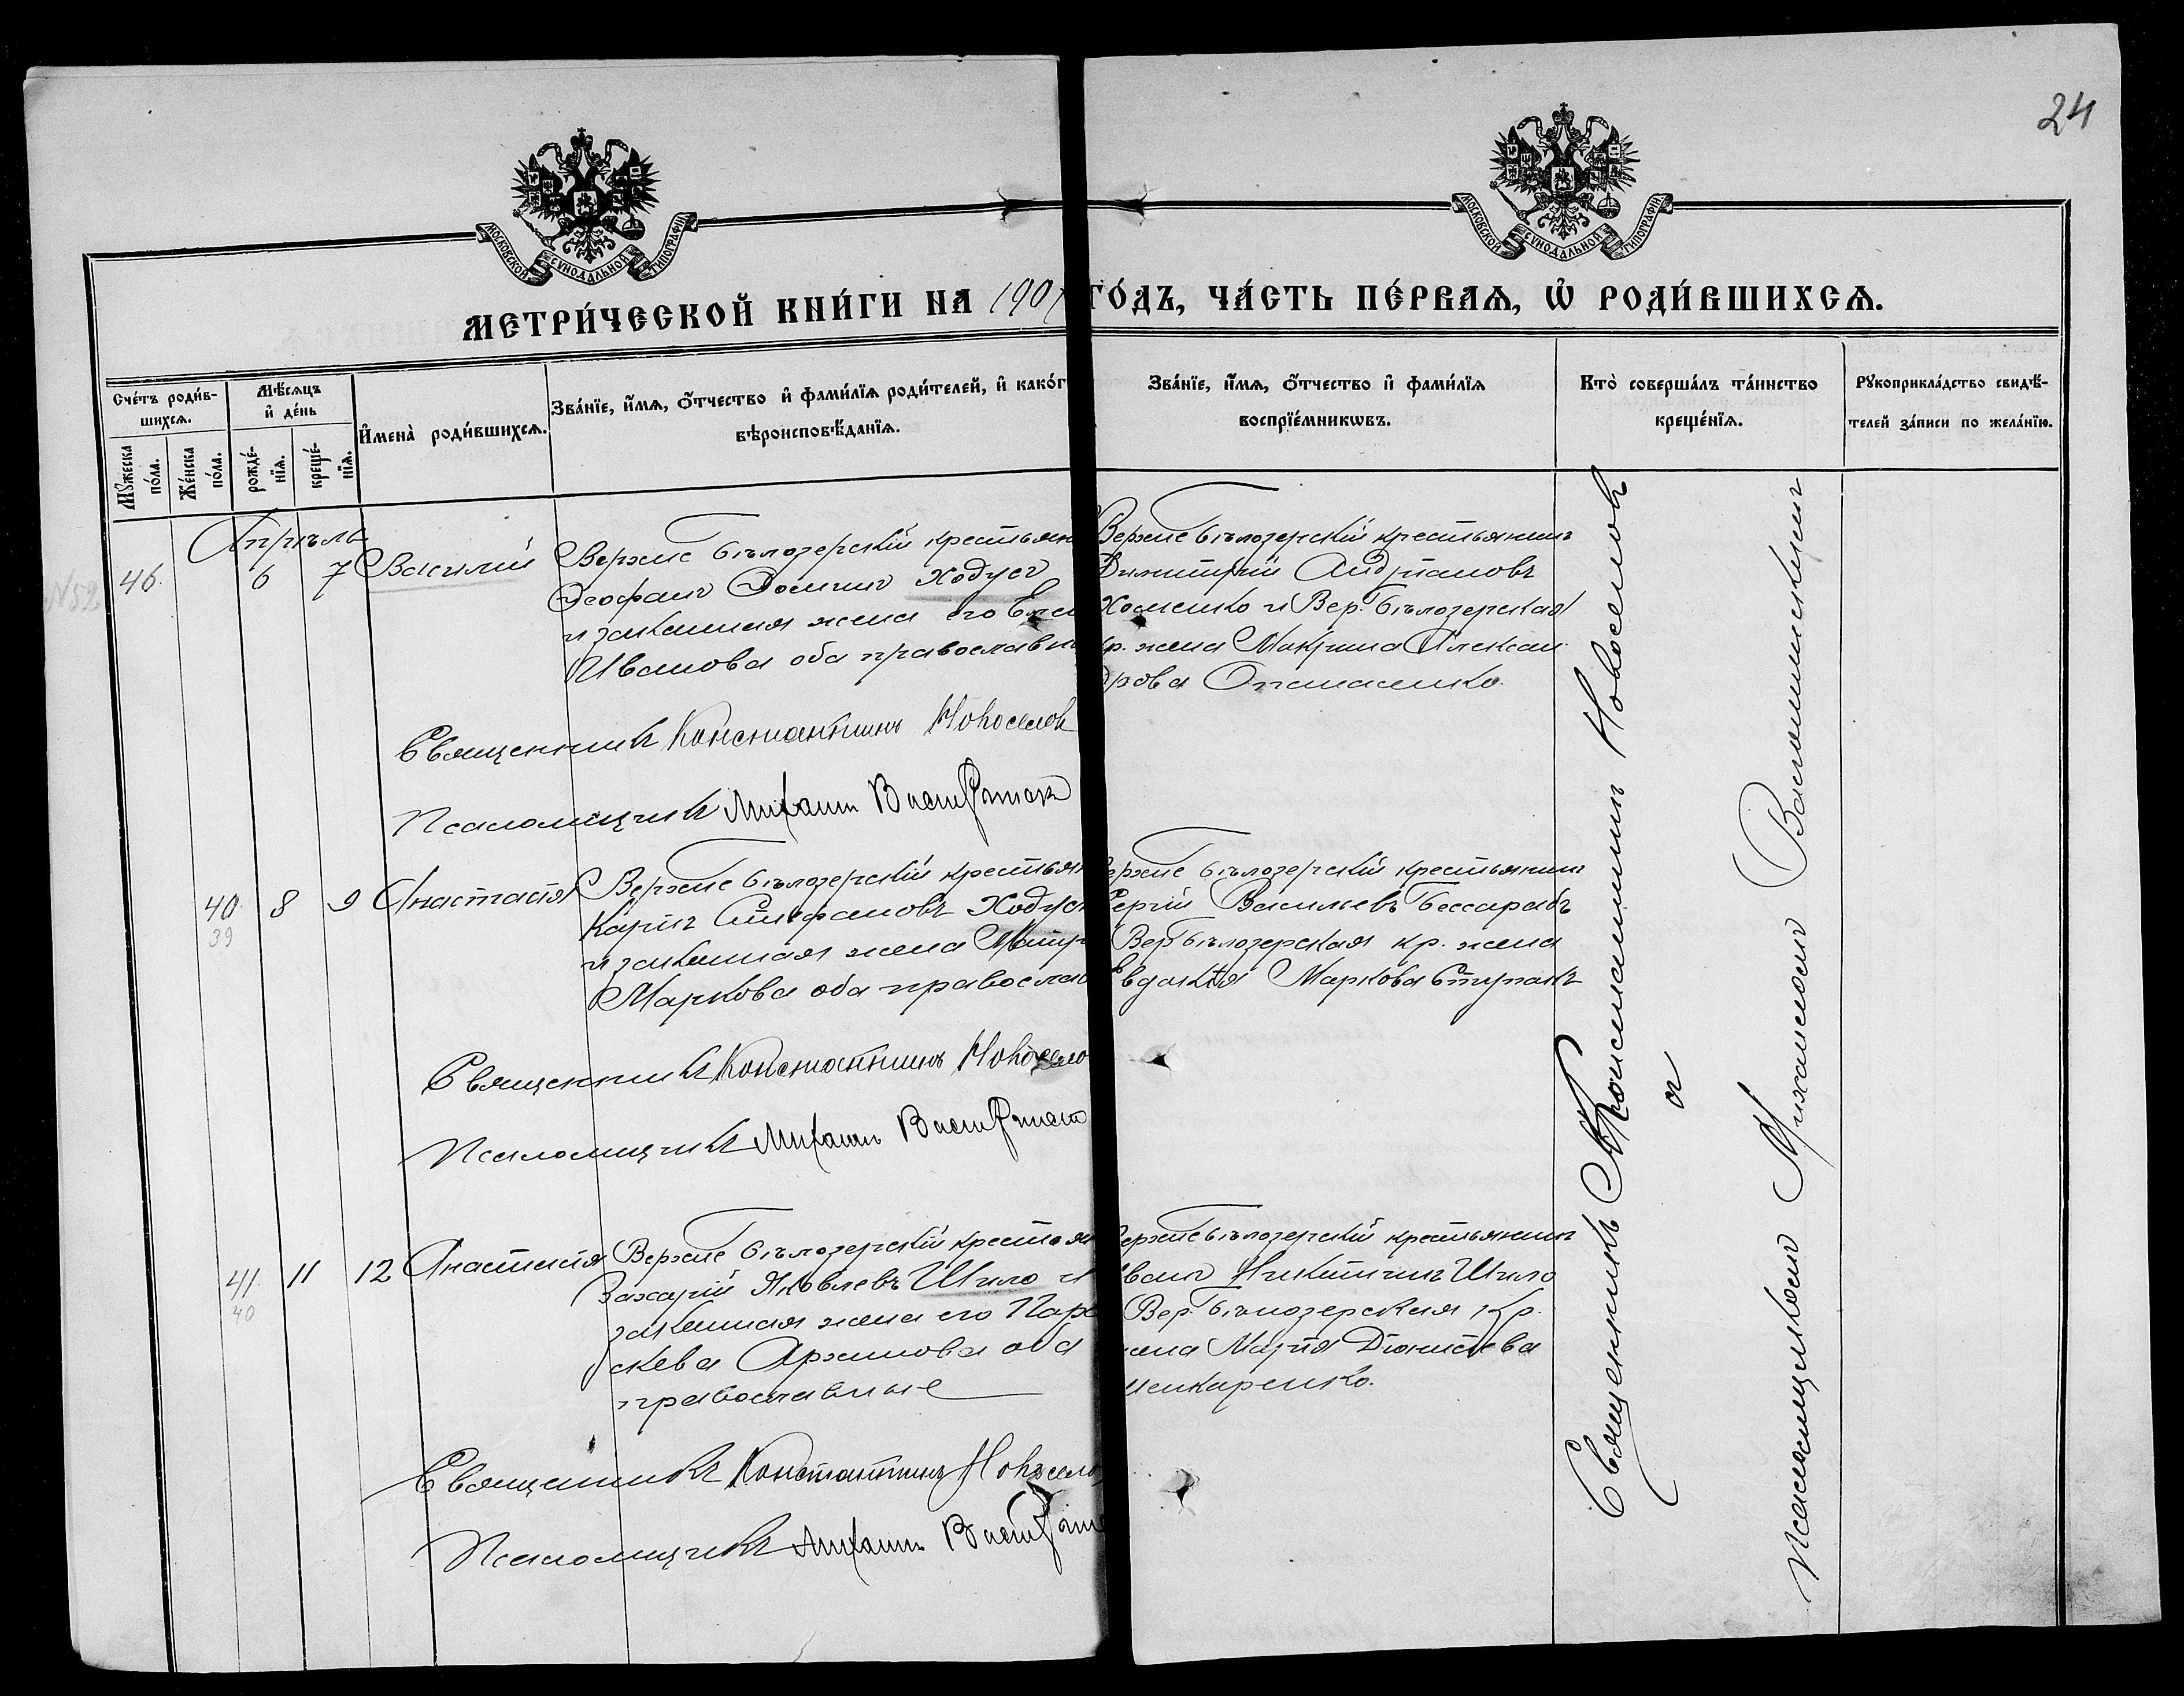 24
МОСКОВСКОЙ СѴНОДАЛЬНОЙ ТИПОГРАФІИ
МОСКОВСКОЙ СѴНОДАЛЬНОЙ ТИПОГРАФІИ
МЕТРИ́ЧЕСКОЙ КНИ́ГИ НА 190
ГО́ДЪ, ЧА́СТЬ ПЕ́РВАѦ, Ѡ҆ РОДИ́ВШИХСѦ.
Сче́тъ роди́в-
шихсѧ.
Мꙋжеска по́ла.
Же́нска по́ла.
Мѣ́сѧцъ
и҆ де́нь
рожде́-
нїѧ.
креще́-
нїѧ.
И҆мена̀ роди́вшихсѧ.
Зва́нїе, и҆́мѧ, ѻ҆́тчество и҆ фами́лїѧ роди́телей, и҆ како́г
вѣроисповѣ́данїѧ.
Зва́нїе, и҆́мѧ, ѻ҆́тчество и҆ фами́лїѧ
воспрїе́мникѡвъ.
Кто̀ соверша́лъ та́инство
креще́нїѧ.
Рꙋкоприкла́дство свидѣ́-
телей за́писи по жела́нїю.
Апрѣль
№52
46.
6
7
Василій
Верхне Бѣлозерскій крестьян
Ѳеофанъ Ходусъ
и законная жена его
Иванова оба православн
Верхне Бѣлозерскій крестьянинъ
Димитрій Андріановъ
Хоменко и Вер. Бѣлозерская
кр. жена Макрина Алексан
дрова Опанасенко.
Священникъ Константинъ Новоселов
Псаломщикъ Михаилъ
40.
39
8
9
Анастасія
Верхне Бѣлозерскій крестьян
Карпъ Стефановъ Ходус
и законная жена Матр
Маркова оба православ
ерхне Бѣлозерскій крестьянинъ
Сергій Васильевъ Бессарабъ
Вер Бѣлозерская кр. жена
Евдокія Маркова Ступакъ
Священникъ Константинъ Новосело
Псаломщикъ Михаилъ
41.
40
11
12
Анастасія
Верхне Бѣлозерскій крестьян
Захарій Яковлевъ Шило и
законная жена его Пара
скева Архипова оба
православные
ерхне Бѣлозерскій крестьянинъ
Иванъ Никитинъ Шило
Вер. Бѣлозерская кр.
жена Марія Діонисіева
Священникъ Константинъ Новосело
Псаломщикъ Михаилъ
Священникъ Константинъ Новоселовъ
съ
Псаломщикомъ Михаиломъ